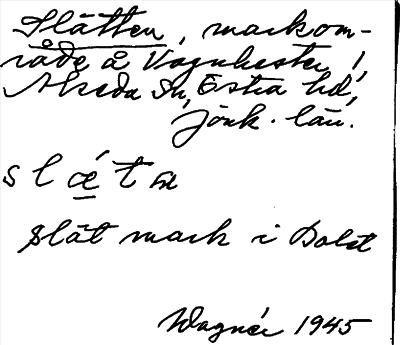 Slätten, markom-
råde å Vagnhester,
Alseda sn, Östra hd,
Jönk. län.
slæ´tn
slät mark i
Wagnér 1945